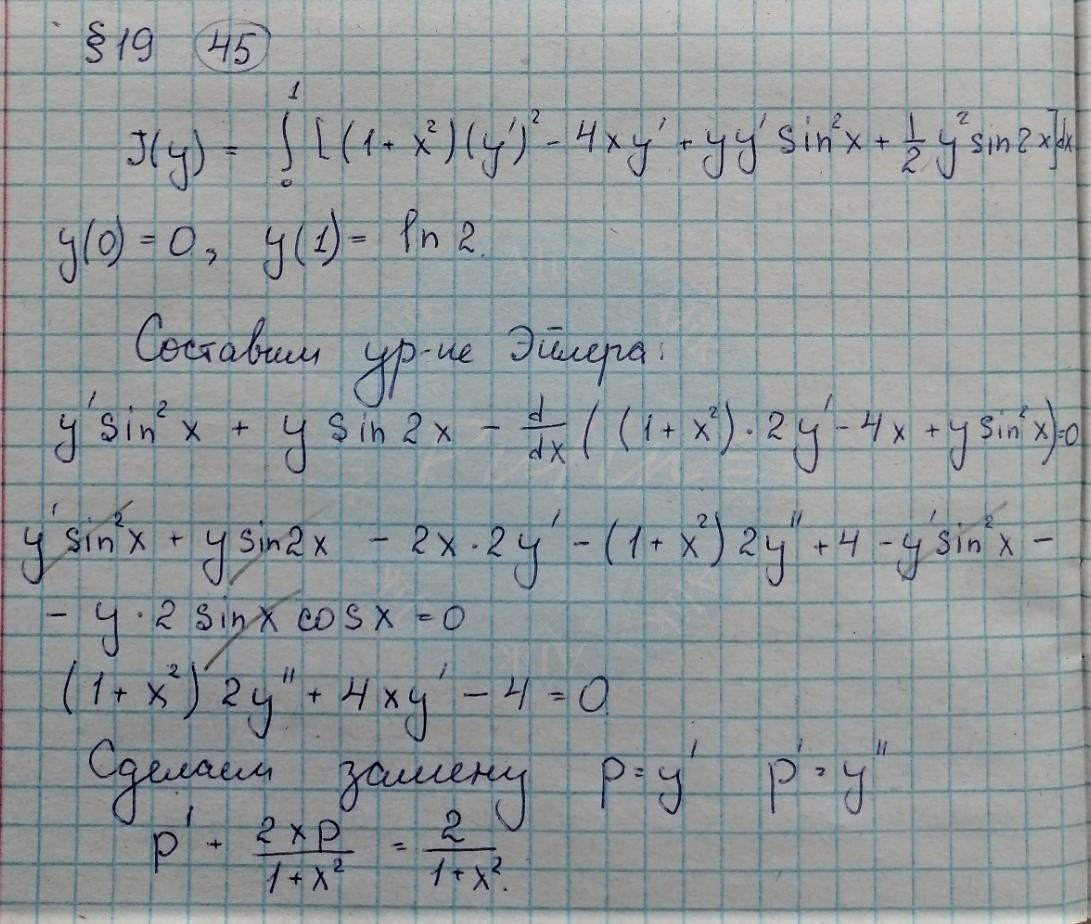 § 19 (45)
J(y) = ∫₀¹ [(1+x²)(y')² - 4xy' + yy' sin²x + 1/2 y² sin2x]dx
y(0) = 0, y(1) = ln 2.
Составим ур-ие Эйлера:
y' sin²x + y sin 2x - d/dx ((1+x²)·2y' - 4x + y sin²x) = 0
y' sin²x + y sin2x - 2x·2y' - (1+x²) 2y'' + 4 - y' sin²x -
- y·2 sin x cos x = 0
(1+x²) 2y'' + 4xy' - 4 = 0
Сделаем замену p = y' p' = y''
p' + 2xp/(1+x²) = 2/(1+x²).